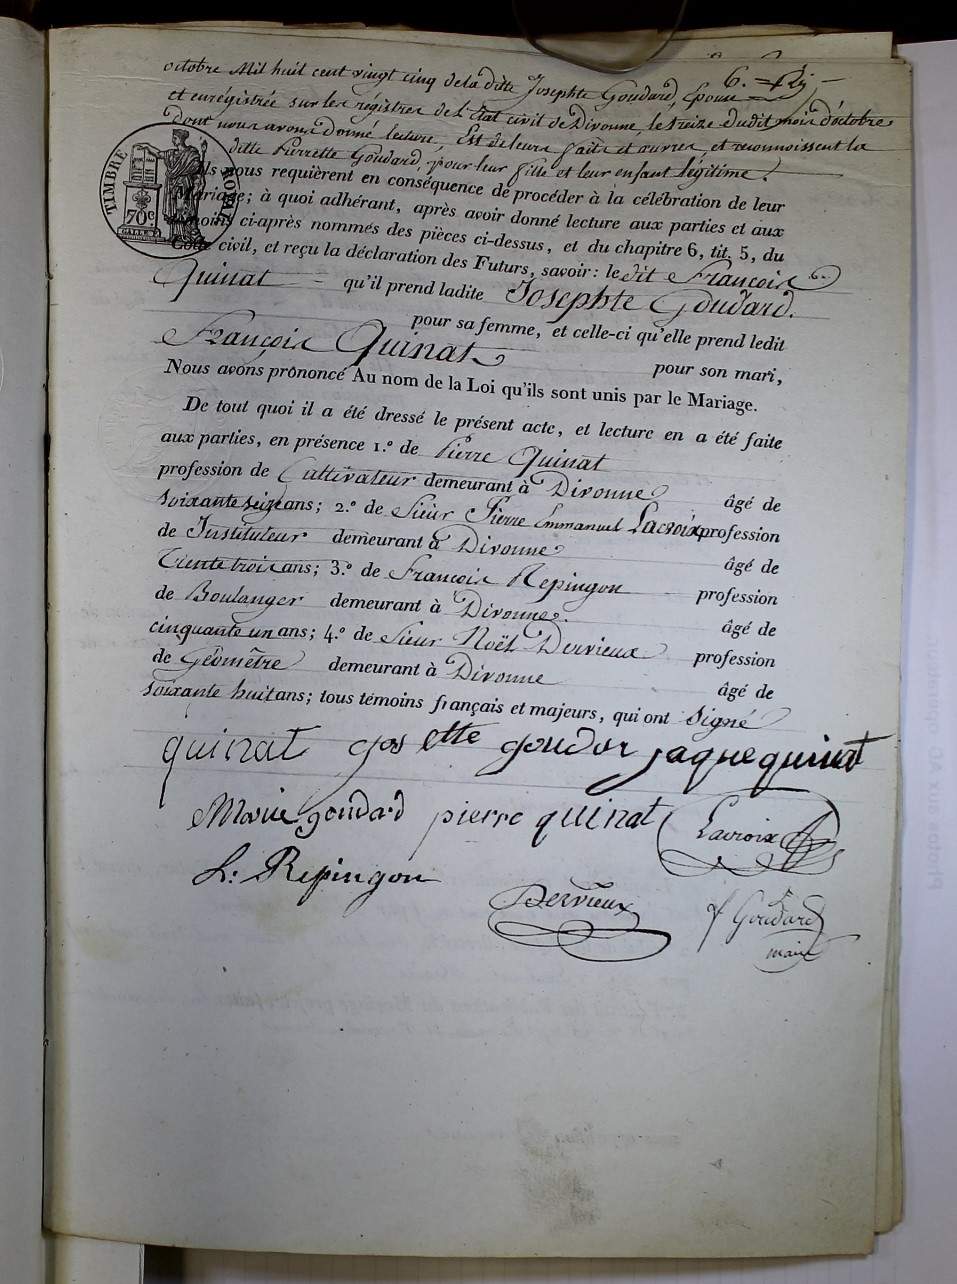 6.
octobre Mil huit cent vingt cinq de la ditte Josephte Goudard, Epoux
et enrégistrée sur les régistres de l'Etat civil de Divonne, le treize dudit mois d'octobre
dont nous avons donné lecture, Est de leurs faits et œuvres, et reconnoissent la
ditte Pierrette Goudard, pour leur fille et leur enfant légitime.
TIMBRE ROYAL
70c
Ils nous requièrent en conséquence de procéder à la célébration de leur
Mariage; à quoi adhérant, après avoir donné lecture aux parties et aux
témoins ci-après nommés des pièces ci-dessus, et du chapitre 6, tit. 5, du
Code civil, et reçu la déclaration des Futurs, savoir: le dit François
Quinat qu'il prend ladite Josephte Goudard.
pour sa femme, et celle-ci qu'elle prend ledit
François Quinat pour son mari,
Nous avons prononcé Au nom de la Loi qu'ils sont unis par le Mariage.
De tout quoi il a été dressé le présent acte, et lecture en a été faite
aux parties, en présence 1.º de Pierre Quinat
profession de Cultivateur demeurant à Divonne âgé de
soixante seize ans; 2.º de Sieur Pierre Emmanuel Lacroix profession
de Instituteur demeurant à Divonne âgé de
Trente trois ans; 3.º de François Repingon profession
de Boulanger demeurant à Divonne. âgé de
cinquante un ans; 4.º de Sieur Noël Dervieux profession
de Géomêtre demeurant à Divonne âgé de
soixante huit ans; tous témoins français et majeurs, qui ont signé
quinat gosette goudar jaque quinat
Marie goudard pierre quinat Lacroix
L. Repingon
Dervieux
Goudard
maire
Photos aux AC